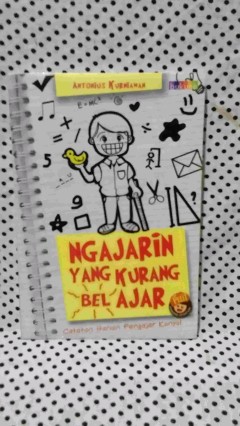 ANTONIUS KURNIAWAN
E=MC²
5
9
NGAJARIN
YANG KURANG
BEL AJAR
Catatan Harian Pengajar Konyol